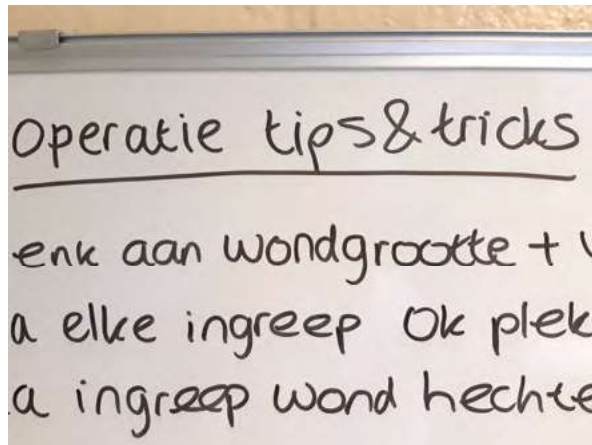 Operatie tips & tricks
enk aan wondgrootte +
a elke ingreep Ok plek
a ingreep wond hechte